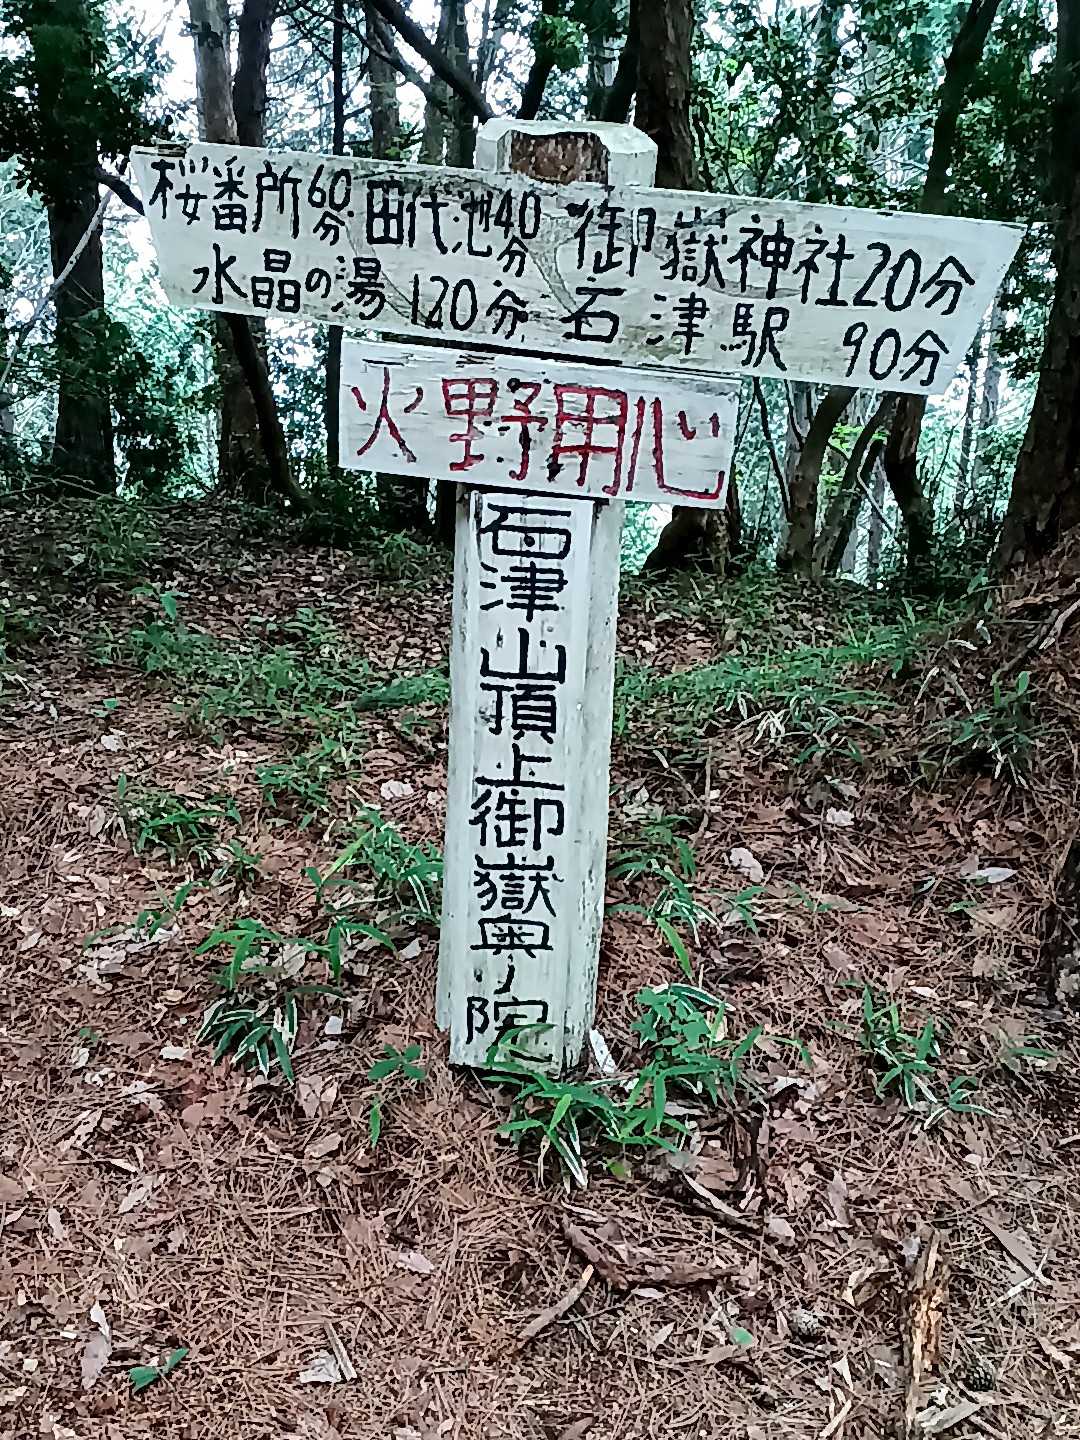 桜番所60分 田代池40分 御嶽神社20分
水晶の湯 120分 石津駅 90分
火野用心
石津山頂上御嶽奥ノ院